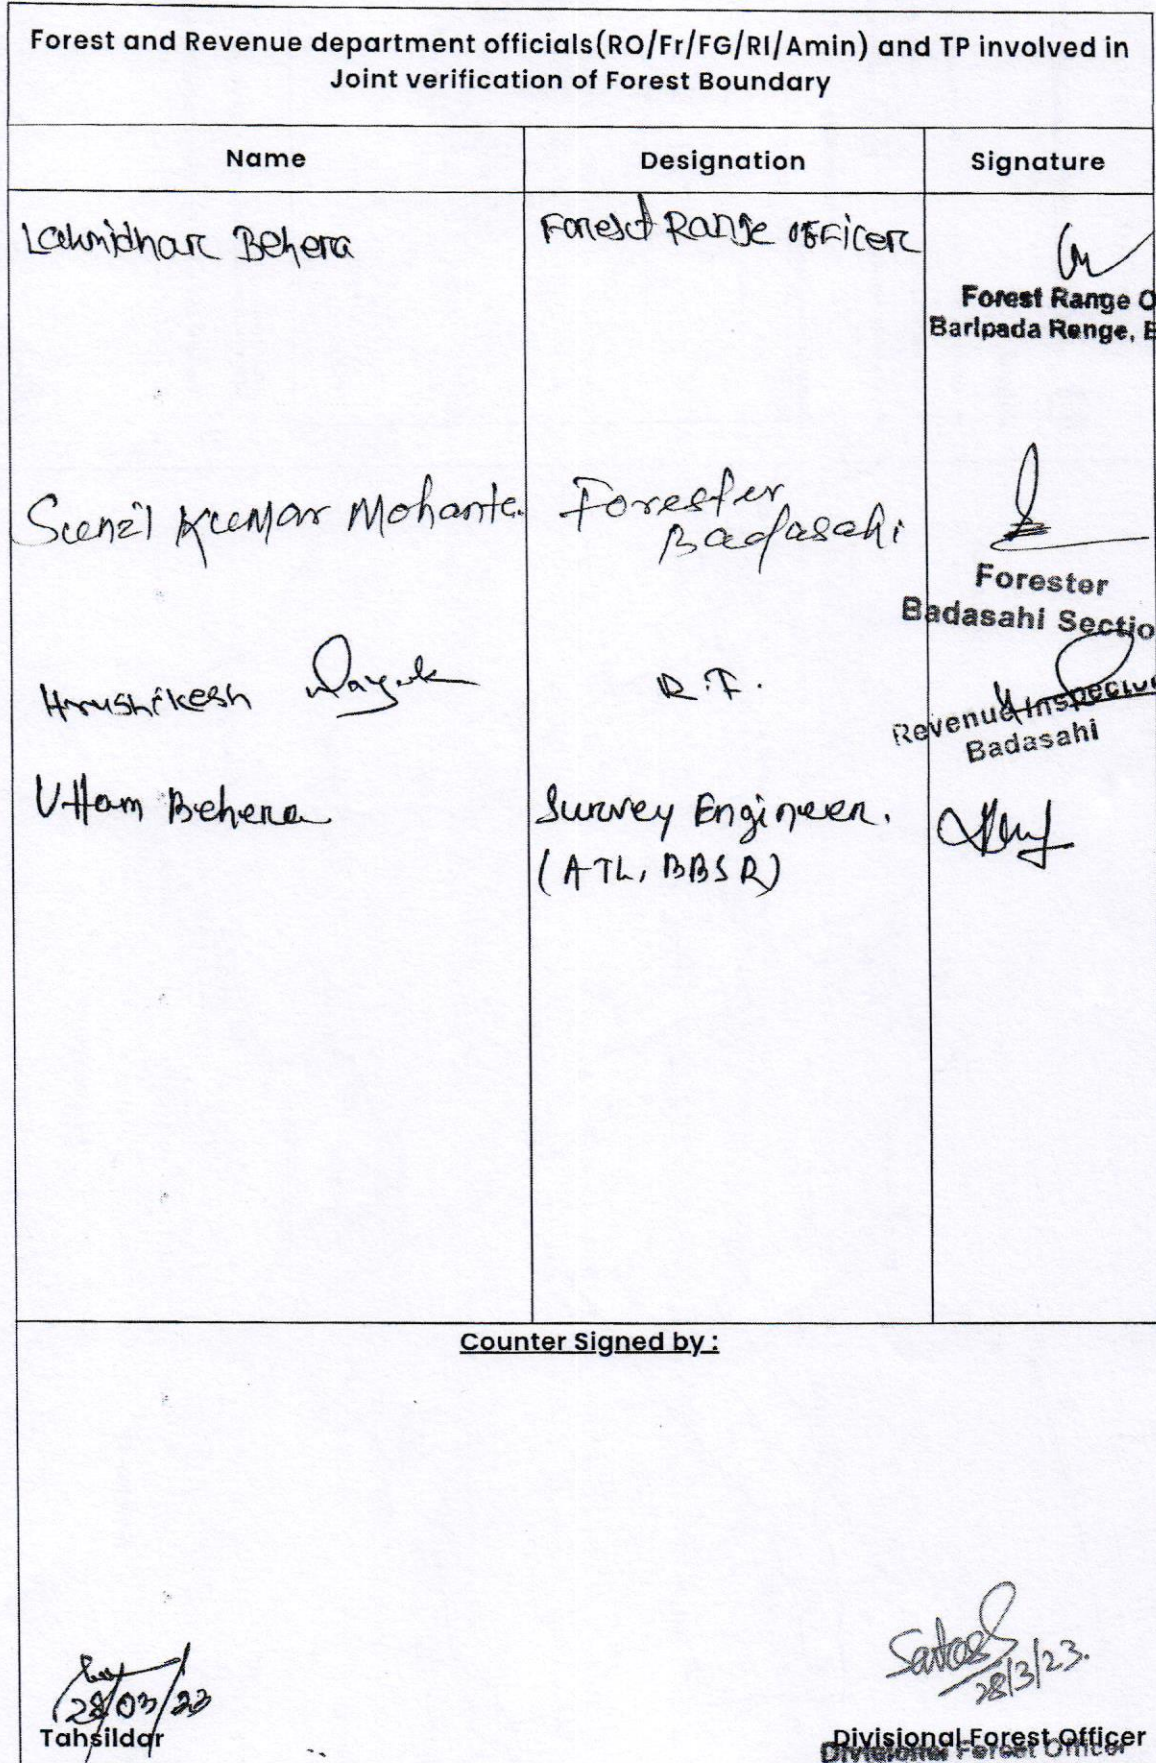 Forest and Revenue department officials(RO/Fr/FG/RI/Amin) and TP involved in
Joint verification of Forest Boundary
Name Designation Signature
Laxmidhar Behera Forest Range Officer
Forest Range O
Baripada Range, B
Sunil Kumar Mohanta. Forester
Badasahi
Forester
Badasahi Sectio
Hrushikesh Nayak R.I.
Revenue Inspector
Badasahi
Uttam Behera Survey Engineer.
(ATL, BBSR)
Counter Signed by :
28/03/23
28/3/23.
Tahsildar Divisional Forest Officer
Divisional Forest Officer